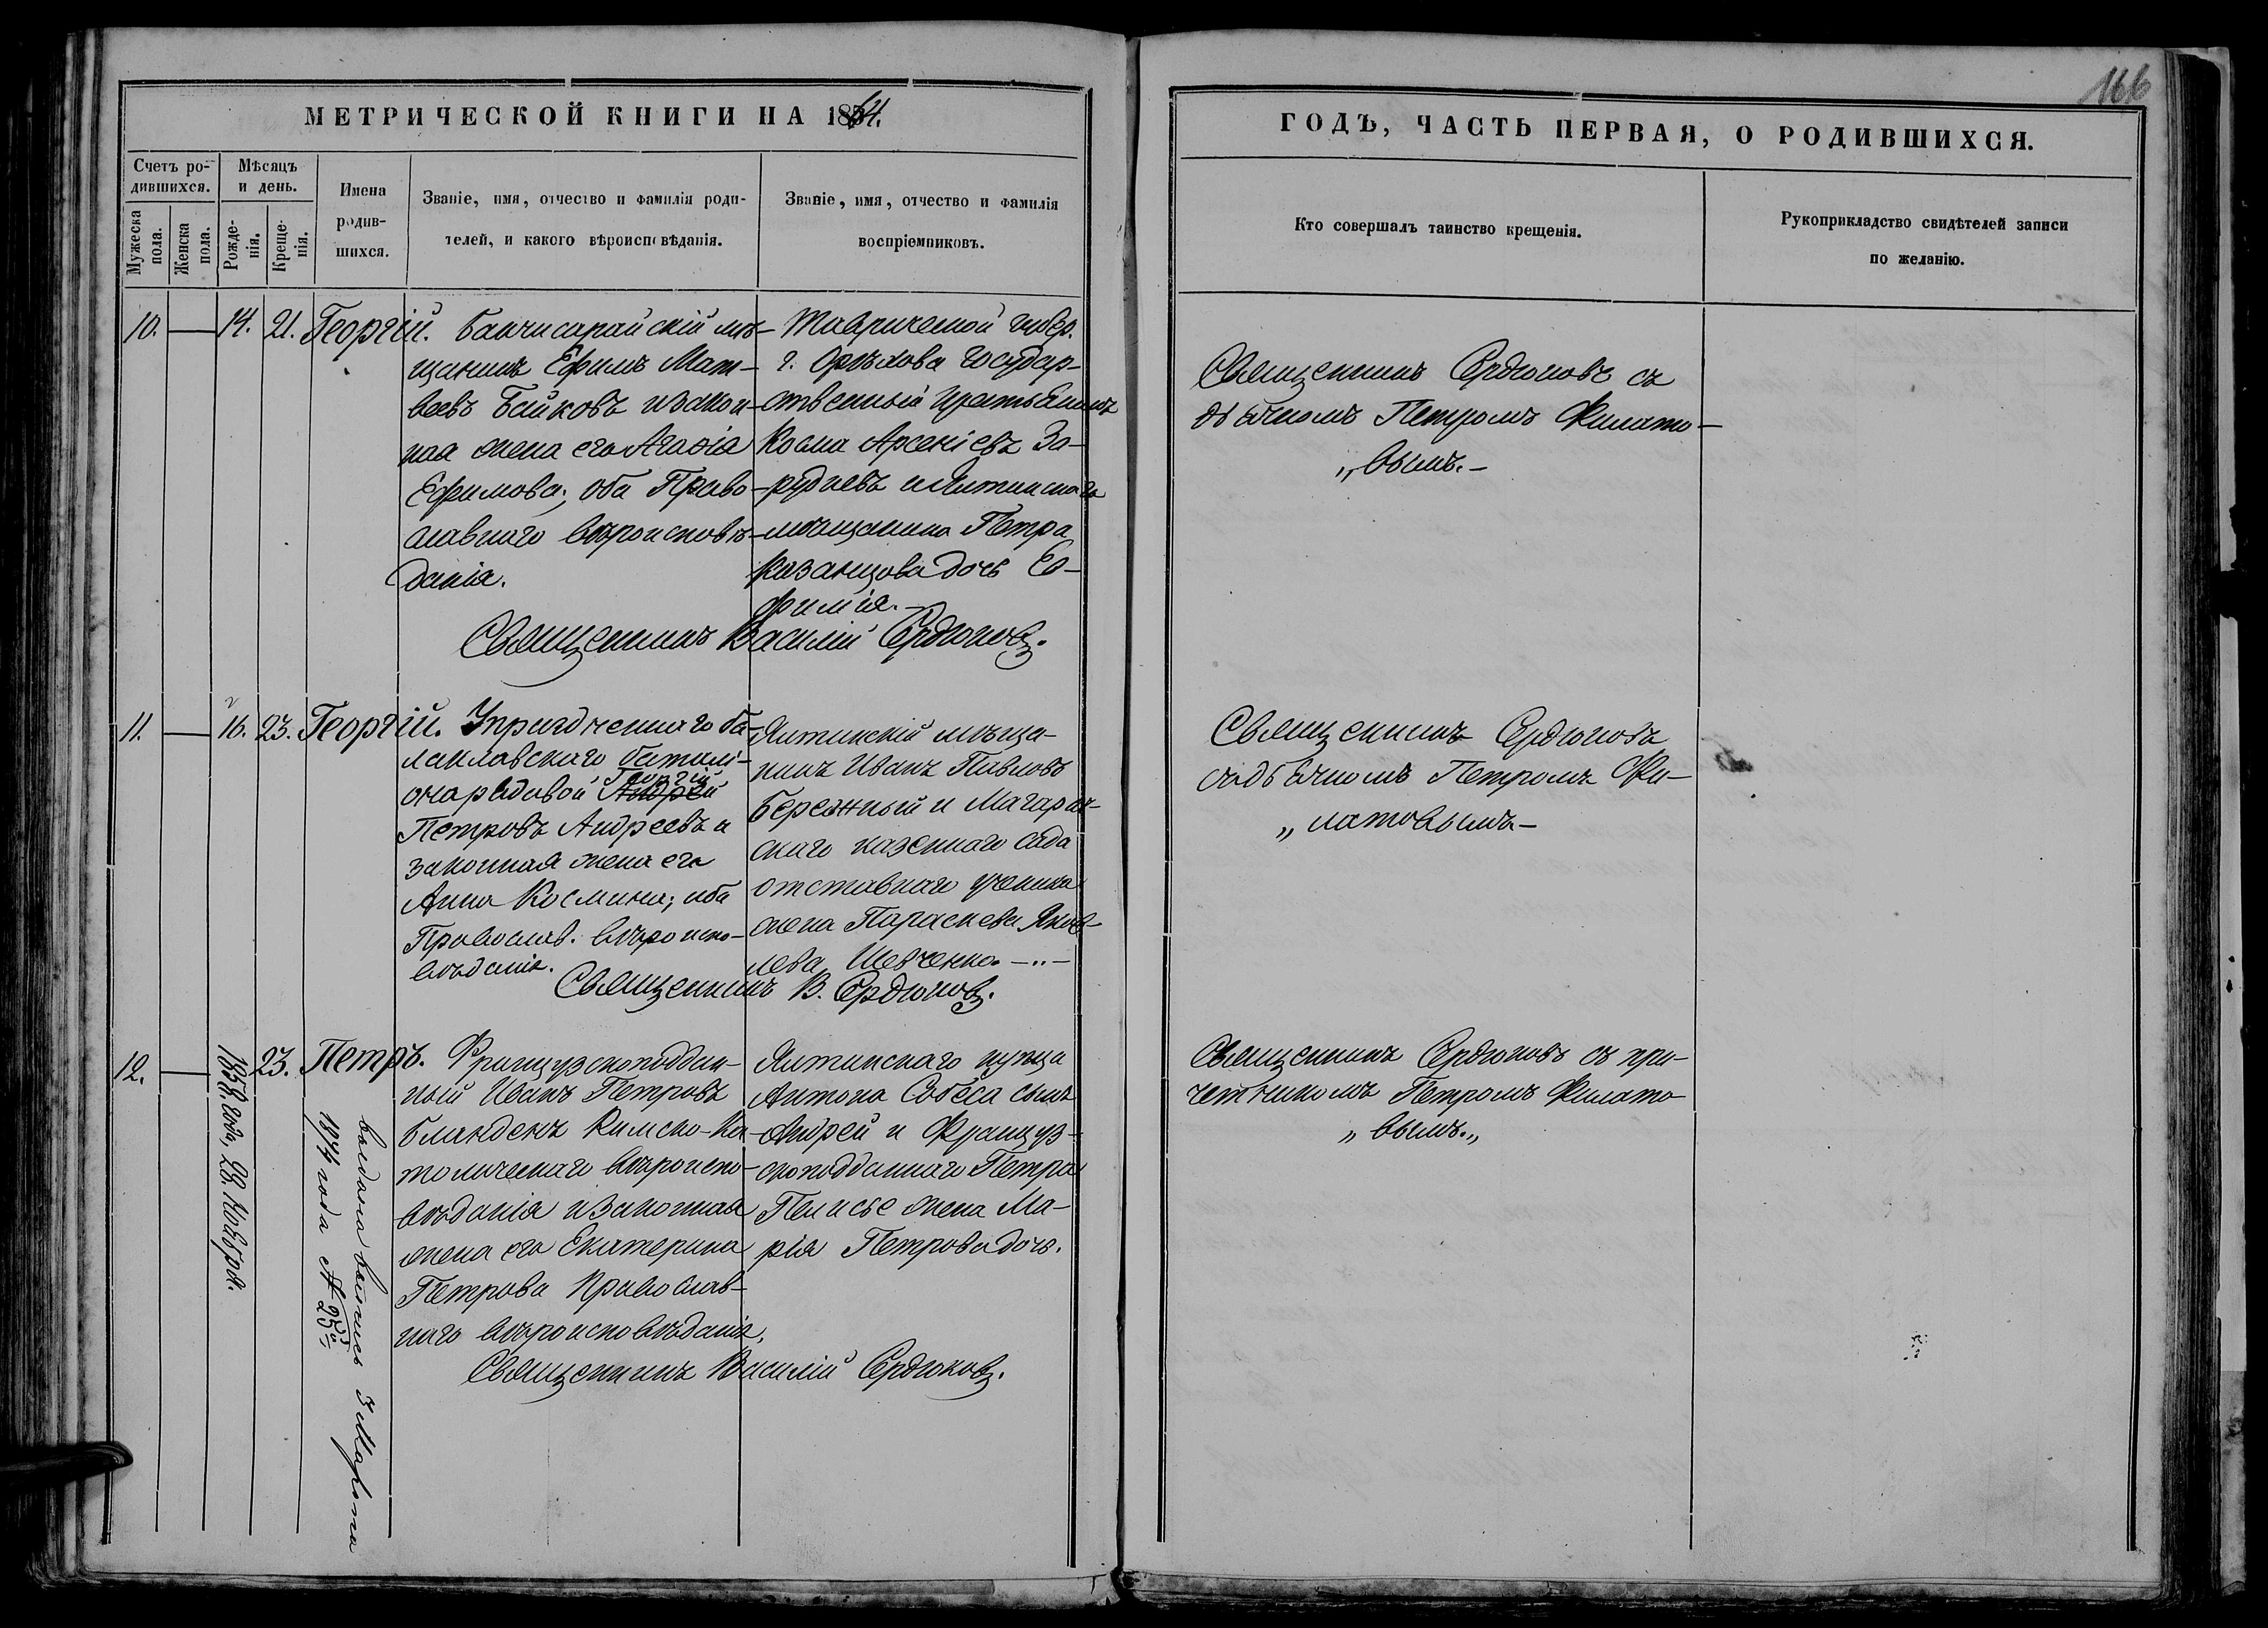 166
МЕТРИЧЕСКОЙ КНИГИ НА 1861.
ГОДЪ, ЧАСТЬ ПЕРВАЯ, О РОДИВШИХСЯ.
Счетъ ро-
дившихся.
Мужеска
пола.
Женска
пола.
Мѣсяцъ
и день.
Рожде-
нія.
Креще-
нія.
Имена
родив-
шихся.
Званіе, имя, отчество и фамилія роди-
телей, и какого вѣроисповѣданія.
Званіе, имя, отчество и фамилія
воспріемниковъ.
Кто совершалъ таинство крещенія.
Рукоприкладство свидѣтелей записи
по желанію.
10. — 14. 21. Георгій.
Бакчисарайскій мѣ-
щанинъ Ефимъ Мат-
веевъ Байковъ и закон-
ная жена его Агафія
Ефимова; оба Право-
славнаго вѣроисповѣ-
данія.
Таврической губер.
г. Орѣхова Государ-
ственный крестьянинъ
Косма Арсеніевъ За-
рудневъ и Ялтинскаго
мѣщанина Петра
Казанцова дочь Ев-
фимія.
Священникъ Василій Сердюковъ.
Священникъ Сердюковъ съ
дьячкомъ Петромъ Филато-
„вымъ.—
11. — 16. 23. Георгій.
Упраздненнаго ба-
лаклавскаго баталі-
она рядовой Андрей
Георгій
Петровъ Андреевъ и
законная жена его
Анна Космина; оба
Православ. вѣроиспо-
вѣданія.
Ялтинскій мѣща-
нинъ Иванъ Павловъ
Бережный и Магарач-
скаго казеннаго сада
отставнаго ученика
жена Параскева Яков-
лева Шевченко.
Священникъ В. Сердюковъ.
Священникъ Сердюковъ
съ дьячкомъ Петромъ Фи-
„латовымъ—
12. — 1858. года, 28. Ноября. 23. Петръ.
Выдана выпись 3 Марта
1874 года №
Французскоподдан-
ный Иванъ Петровъ
Бланденъ Римско-Ка-
толическаго вѣроиспо-
вѣданія и законная
жена его Екатерина
Петрова Православ-
наго вѣроисповѣданія.
Ялтинскаго купца
Антона Собеса сынъ
Андрей и Француз-
скоподданнаго Петра
Пелисье жена Ма-
рія Петрова дочь.
Священникъ Василій Сердюковъ.
Священникъ Сердюковъ съ при-
четникомъ Петромъ Филато-
„вымъ.„